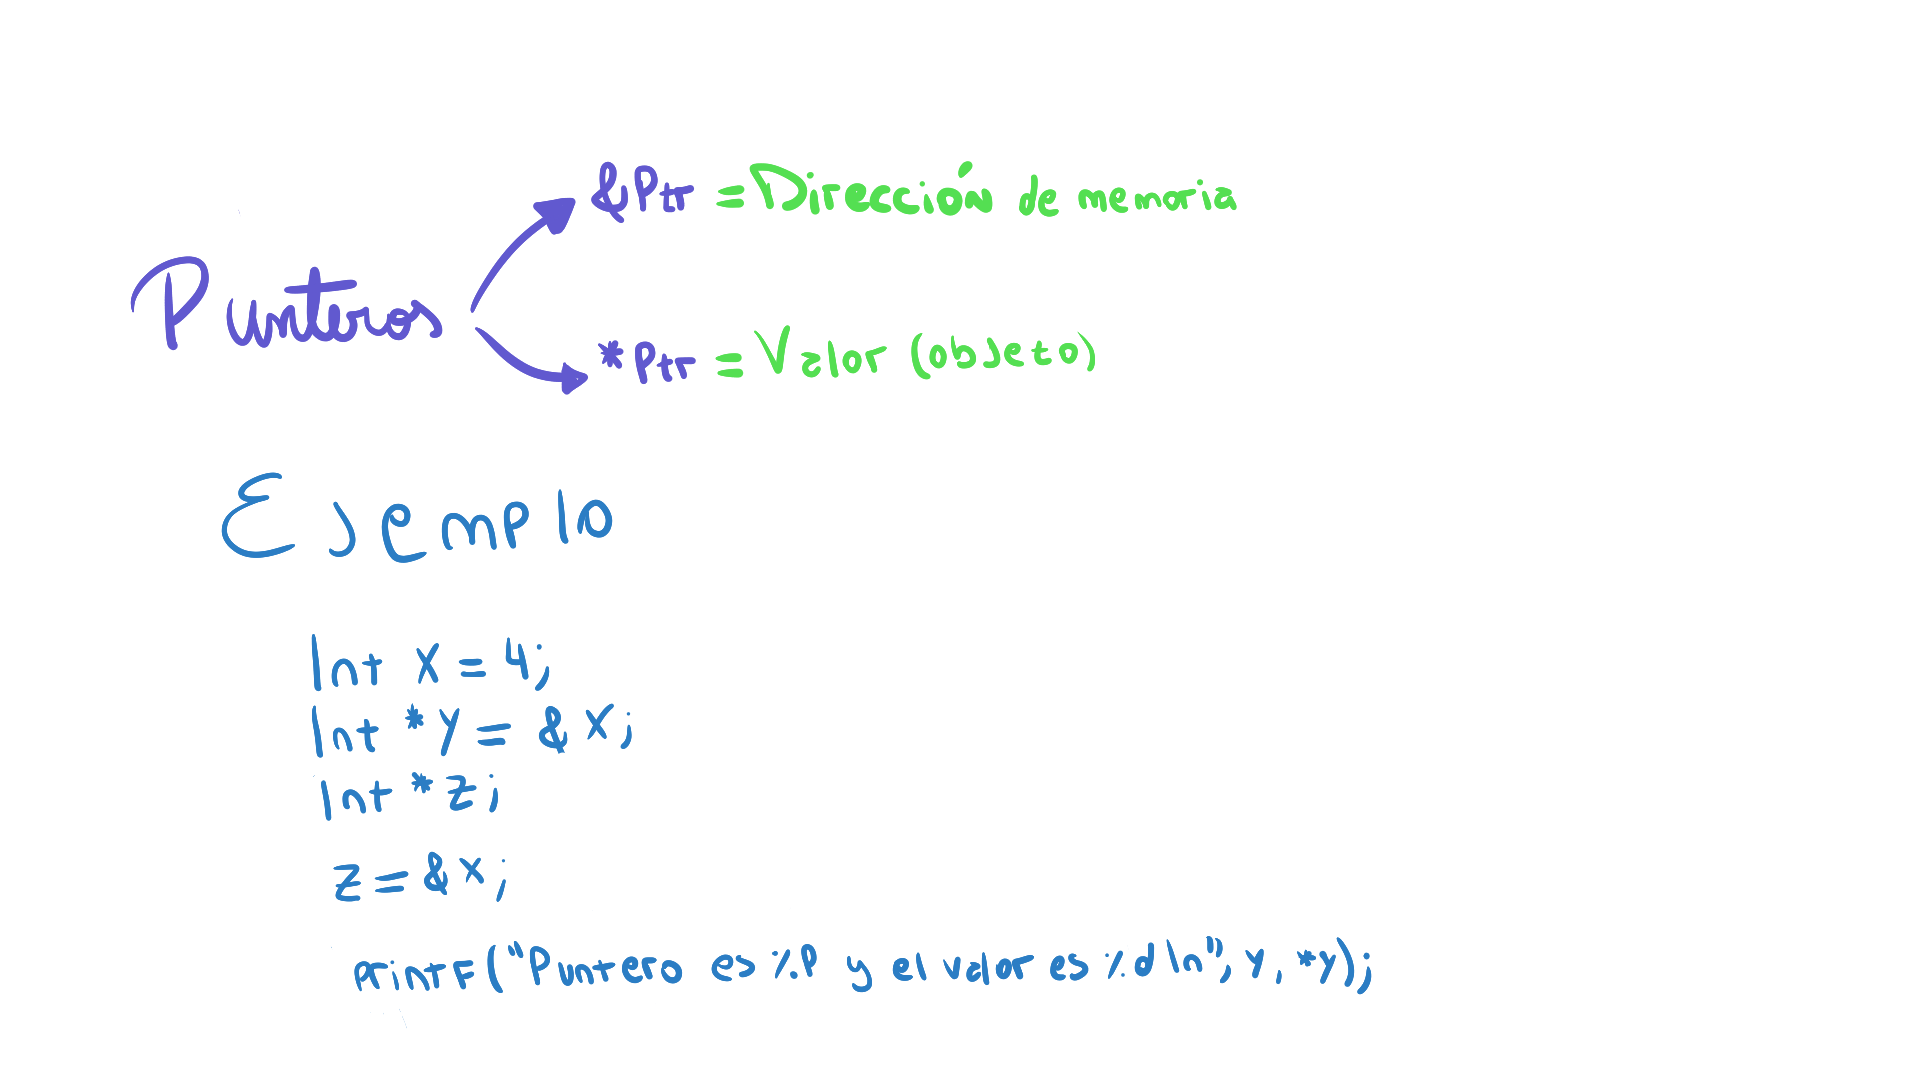 Punteros
&Ptr = Dirección de memoria
*Ptr = Valor (objeto)
Ejemplo
Int X = 4;
Int *Y = &X;
Int *z;
z = &x;
printF("Puntero es %P y el valor es %d \n", Y, *Y);